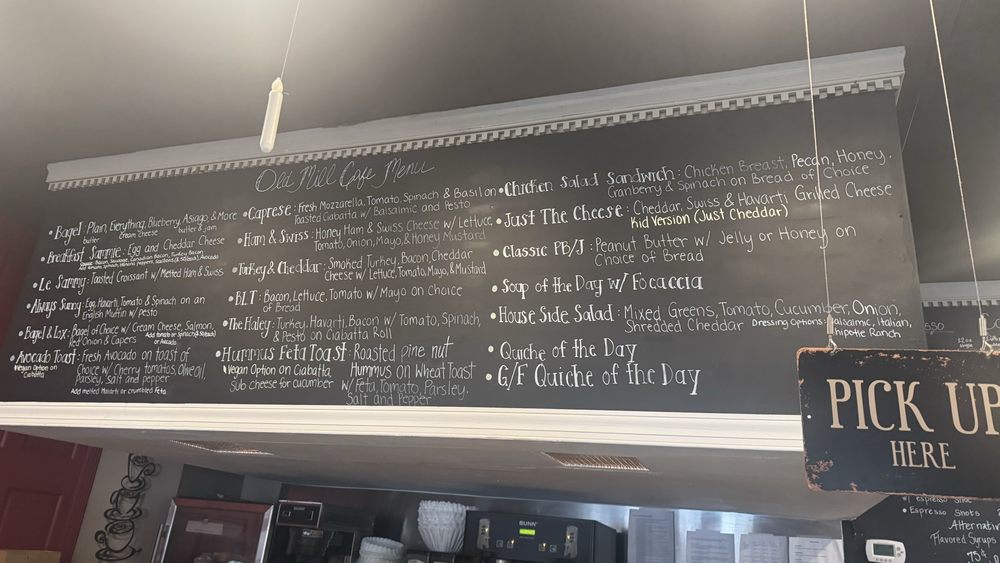 Old Mill Cafe Menu
• Bagel: Plain, Everything, Blueberry, Asiago, & More
butter cream cheese butter & jam
• Breakfast Sammie: Egg and Cheddar Cheese
• Le Sammy: Toasted Croissant w/ Melted Ham & Swiss
• Always Sunny: Egg, Havarti, Tomato & Spinach on an
English Muffin w/ pesto
• Bagel & Lox: Bagel of Choice w/ Cream Cheese, Salmon,
Red Onion & Capers Add tomato or Spinach
or Avocado
• Avocado Toast: Fresh Avocado on toast of
Vegan Option on
Ciabatta
Choice w/ Cherry tomatoes,
Parsley, Salt and pepper
Add melted Havarti or crumbled Feta
• Caprese: Fresh Mozzarella, Tomato, Spinach & Basil on
Toasted Ciabatta w/ Balsalmic and Pesto
• Ham & Swiss: Honey Ham & Swiss Cheese w/ Lettuce,
Tomato, Onion, Mayo, & Honey Mustard
• Turkey & Cheddar: Smoked Turkey, Bacon, Cheddar
Cheese w/ Lettuce, Tomato, Mayo, & Mustard
• BLT: Bacon, Lettuce, Tomato w/ Mayo on Choice
of Bread
• The Haley: Turkey, Havarti, Bacon w/ Tomato, Spinach,
& Pesto on Ciabatta Roll
• Hummus Feta Toast: Roasted pine nut
Vegan Option on Ciabatta,
Sub cheese for cucumber
Hummus on Wheat Toast
w/ Feta, Tomato, Parsley,
Salt and Pepper
• Chicken Salad Sandwich: Chicken Breast, Pecan, Honey,
Cranberry & Spinach on Bread of Choice
• Just The Cheese: Cheddar, Swiss & Havarti Grilled Cheese
Kid Version (Just Cheddar)
• Classic PB/J: Peanut Butter w/ Jelly or Honey on
Choice of Bread
• Soup of the Day w/ Focaccia
• House Side Salad: Mixed Greens, Tomato, Cucumber, Onion,
Shredded Cheddar Dressing Options: Balsamic, Italian,
Chipotle Ranch
• Quiche of the Day
• G/F Quiche of the Day
PICK UP
HERE
BUNN
w/ espresso shot
• Espresso Shots
Alternativ
Flavored Syrups
.75¢